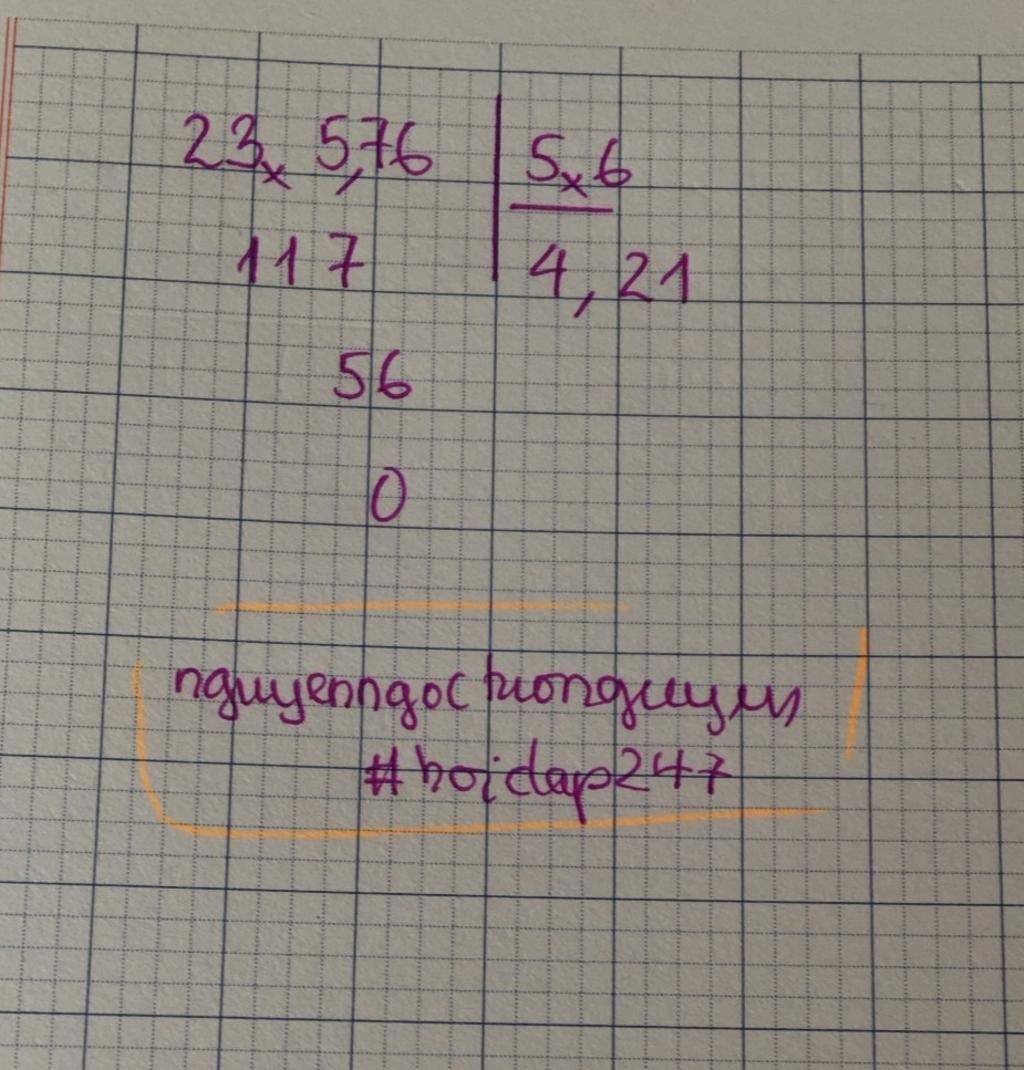 23x 5,76 | 5x6
117 4,21
56
0
nguyenngoctuongquyen
#hoidap247